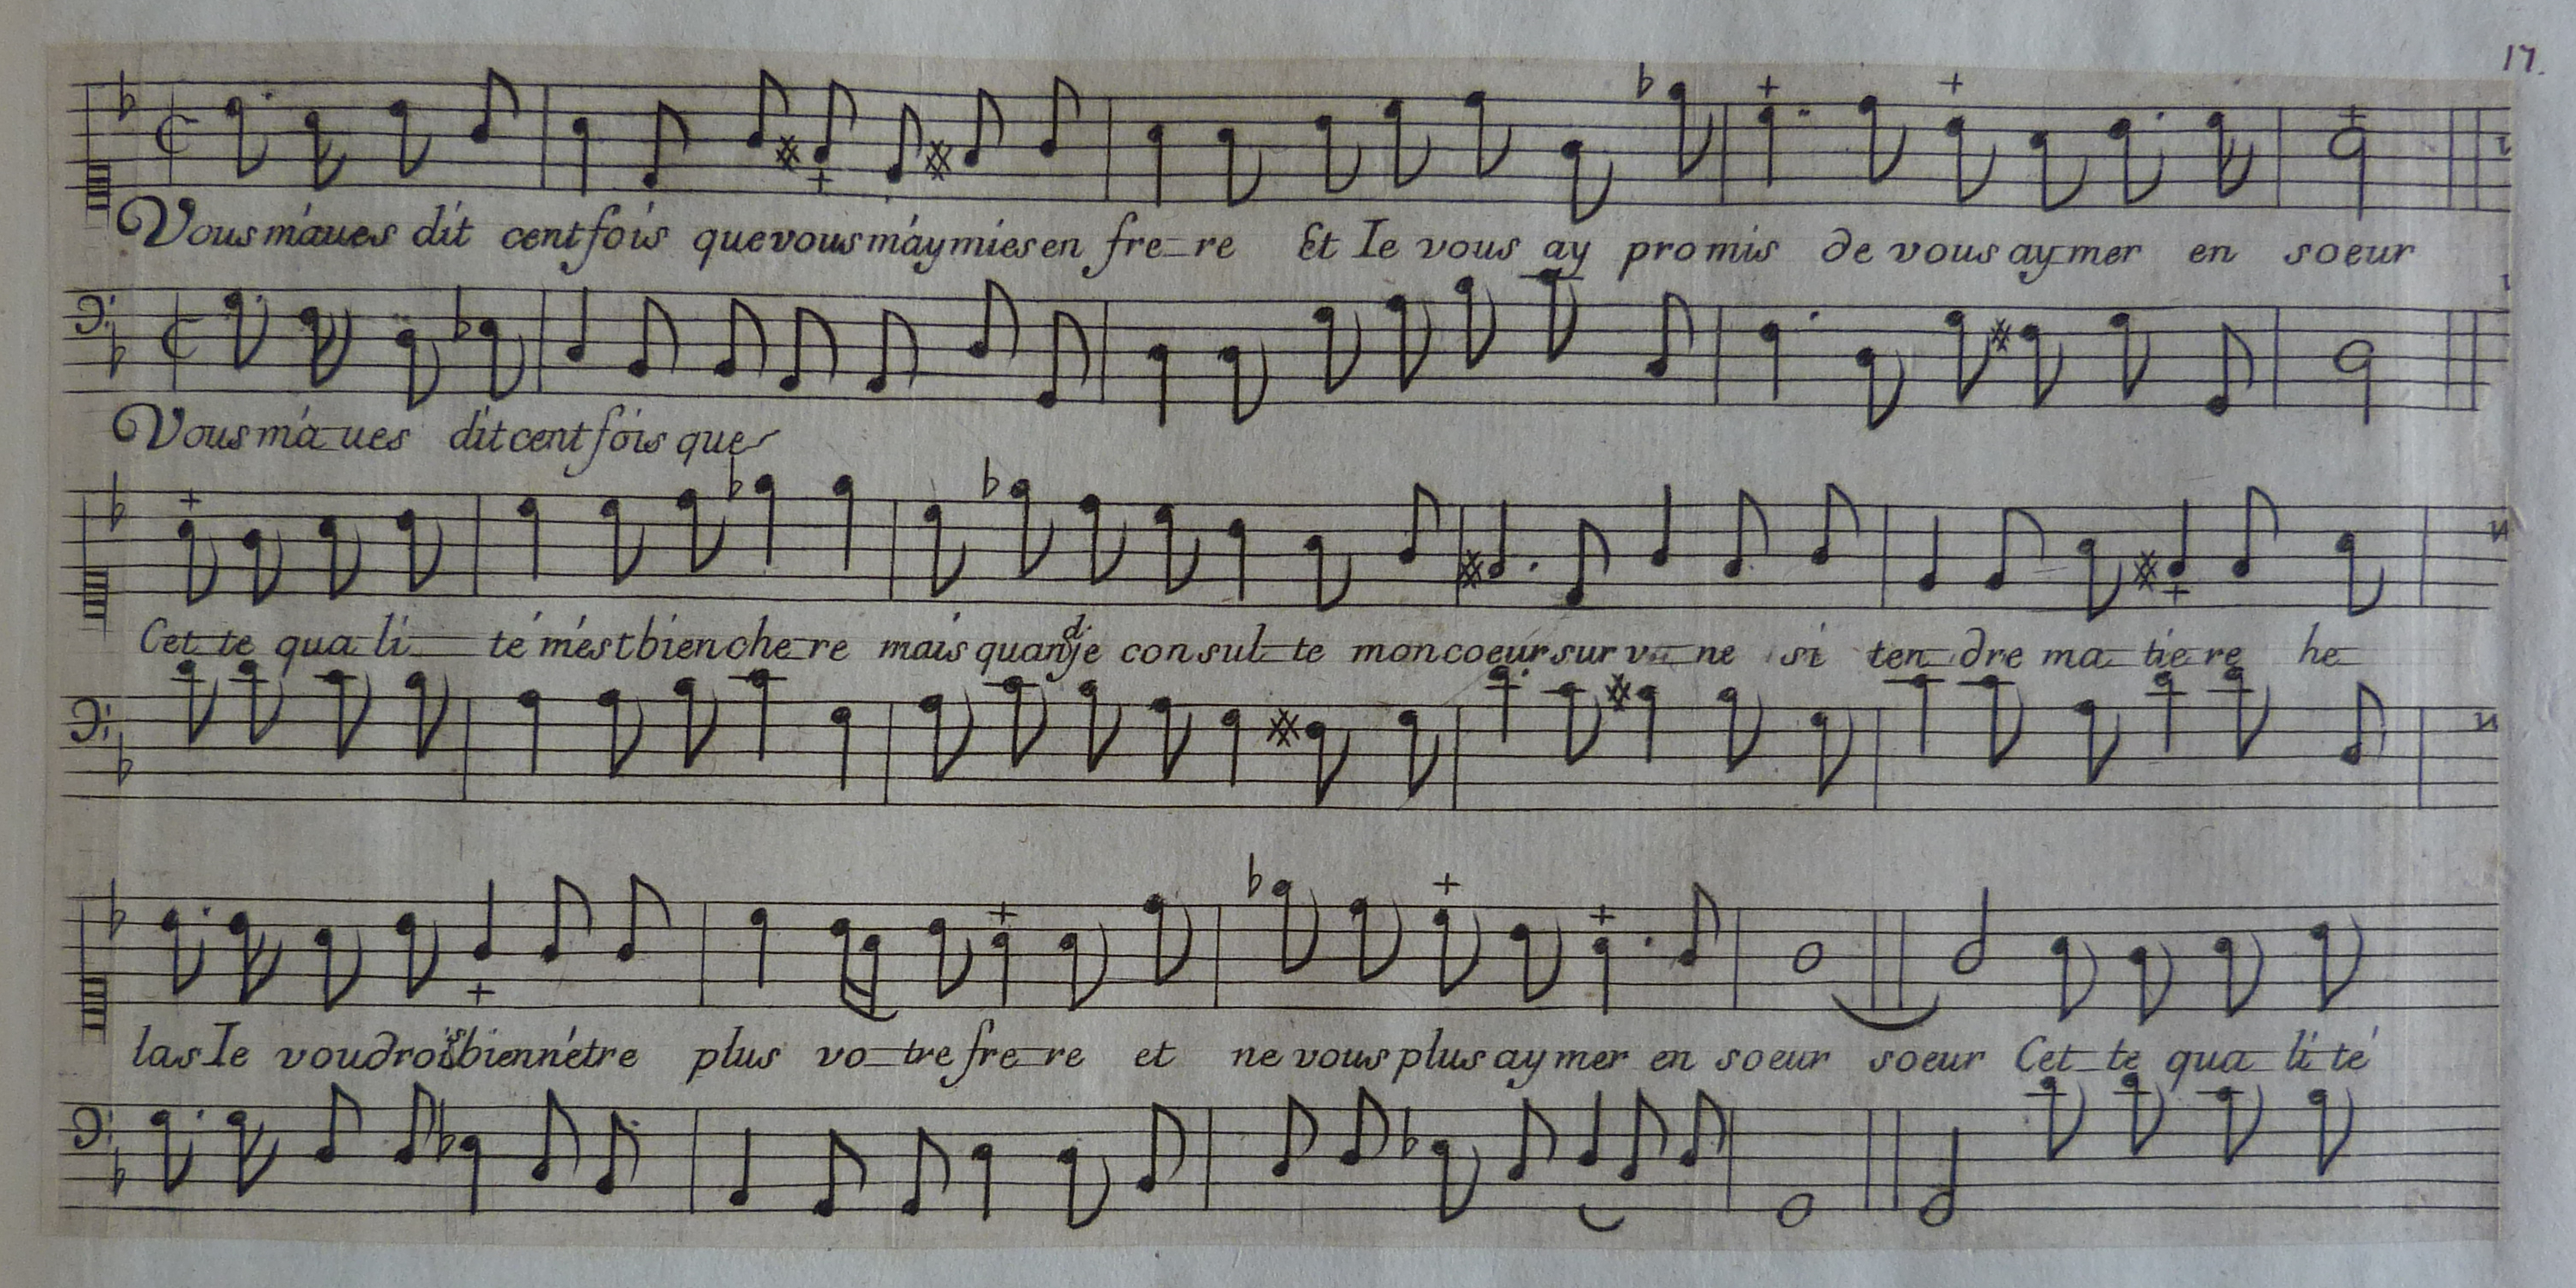 17.
Vous m'aues dit cent fois que vous m'aymies en fre-re Et Ie vous ay promis de vous aymer en soeur
Vous m'a-ues dit cent fois que
Cet-te qua-li-té m'est bien che-re mais quand je consul-te mon coeur sur v-ne si ten-dre ma-tie-re he-
las Ie voudrois bien n'étre plus vo-tre fre-re et ne vous plus aymer en soeur soeur Cet-te qua-li-té